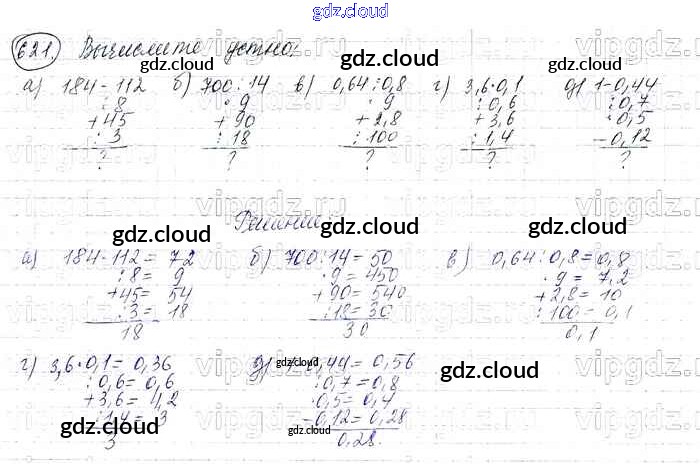 gdz.cloud
621. Вычислите устно:
а) 184-112 б) 700:14 в) 0,64:0,8 г) 3,6·0,1 д) 1-0,44
:8 ·9 ·9 :0,6 :0,7
+45 +90 +2,8 +3,6 ·0,5
:3 :18 :100 :1,4 -0,12
? ? ? ? ?
Решение:
а) 184-112=72 б) 700:14=50 в) 0,64:0,8=0,8
:8= 9 ·9=450 ·9= 7,2
+45= 54 +90= 540 +2,8= 10
:3= 18 :18=30 :100= 0,1
18 30 0,1
г) 3,6·0,1= 0,36 д) 1-0,44= 0,56
:0,6= 0,6 :0,7=0,8
+3,6= 4,2 ·0,5= 0,4
:1,4= 3 -0,12=0,28
3 0,28